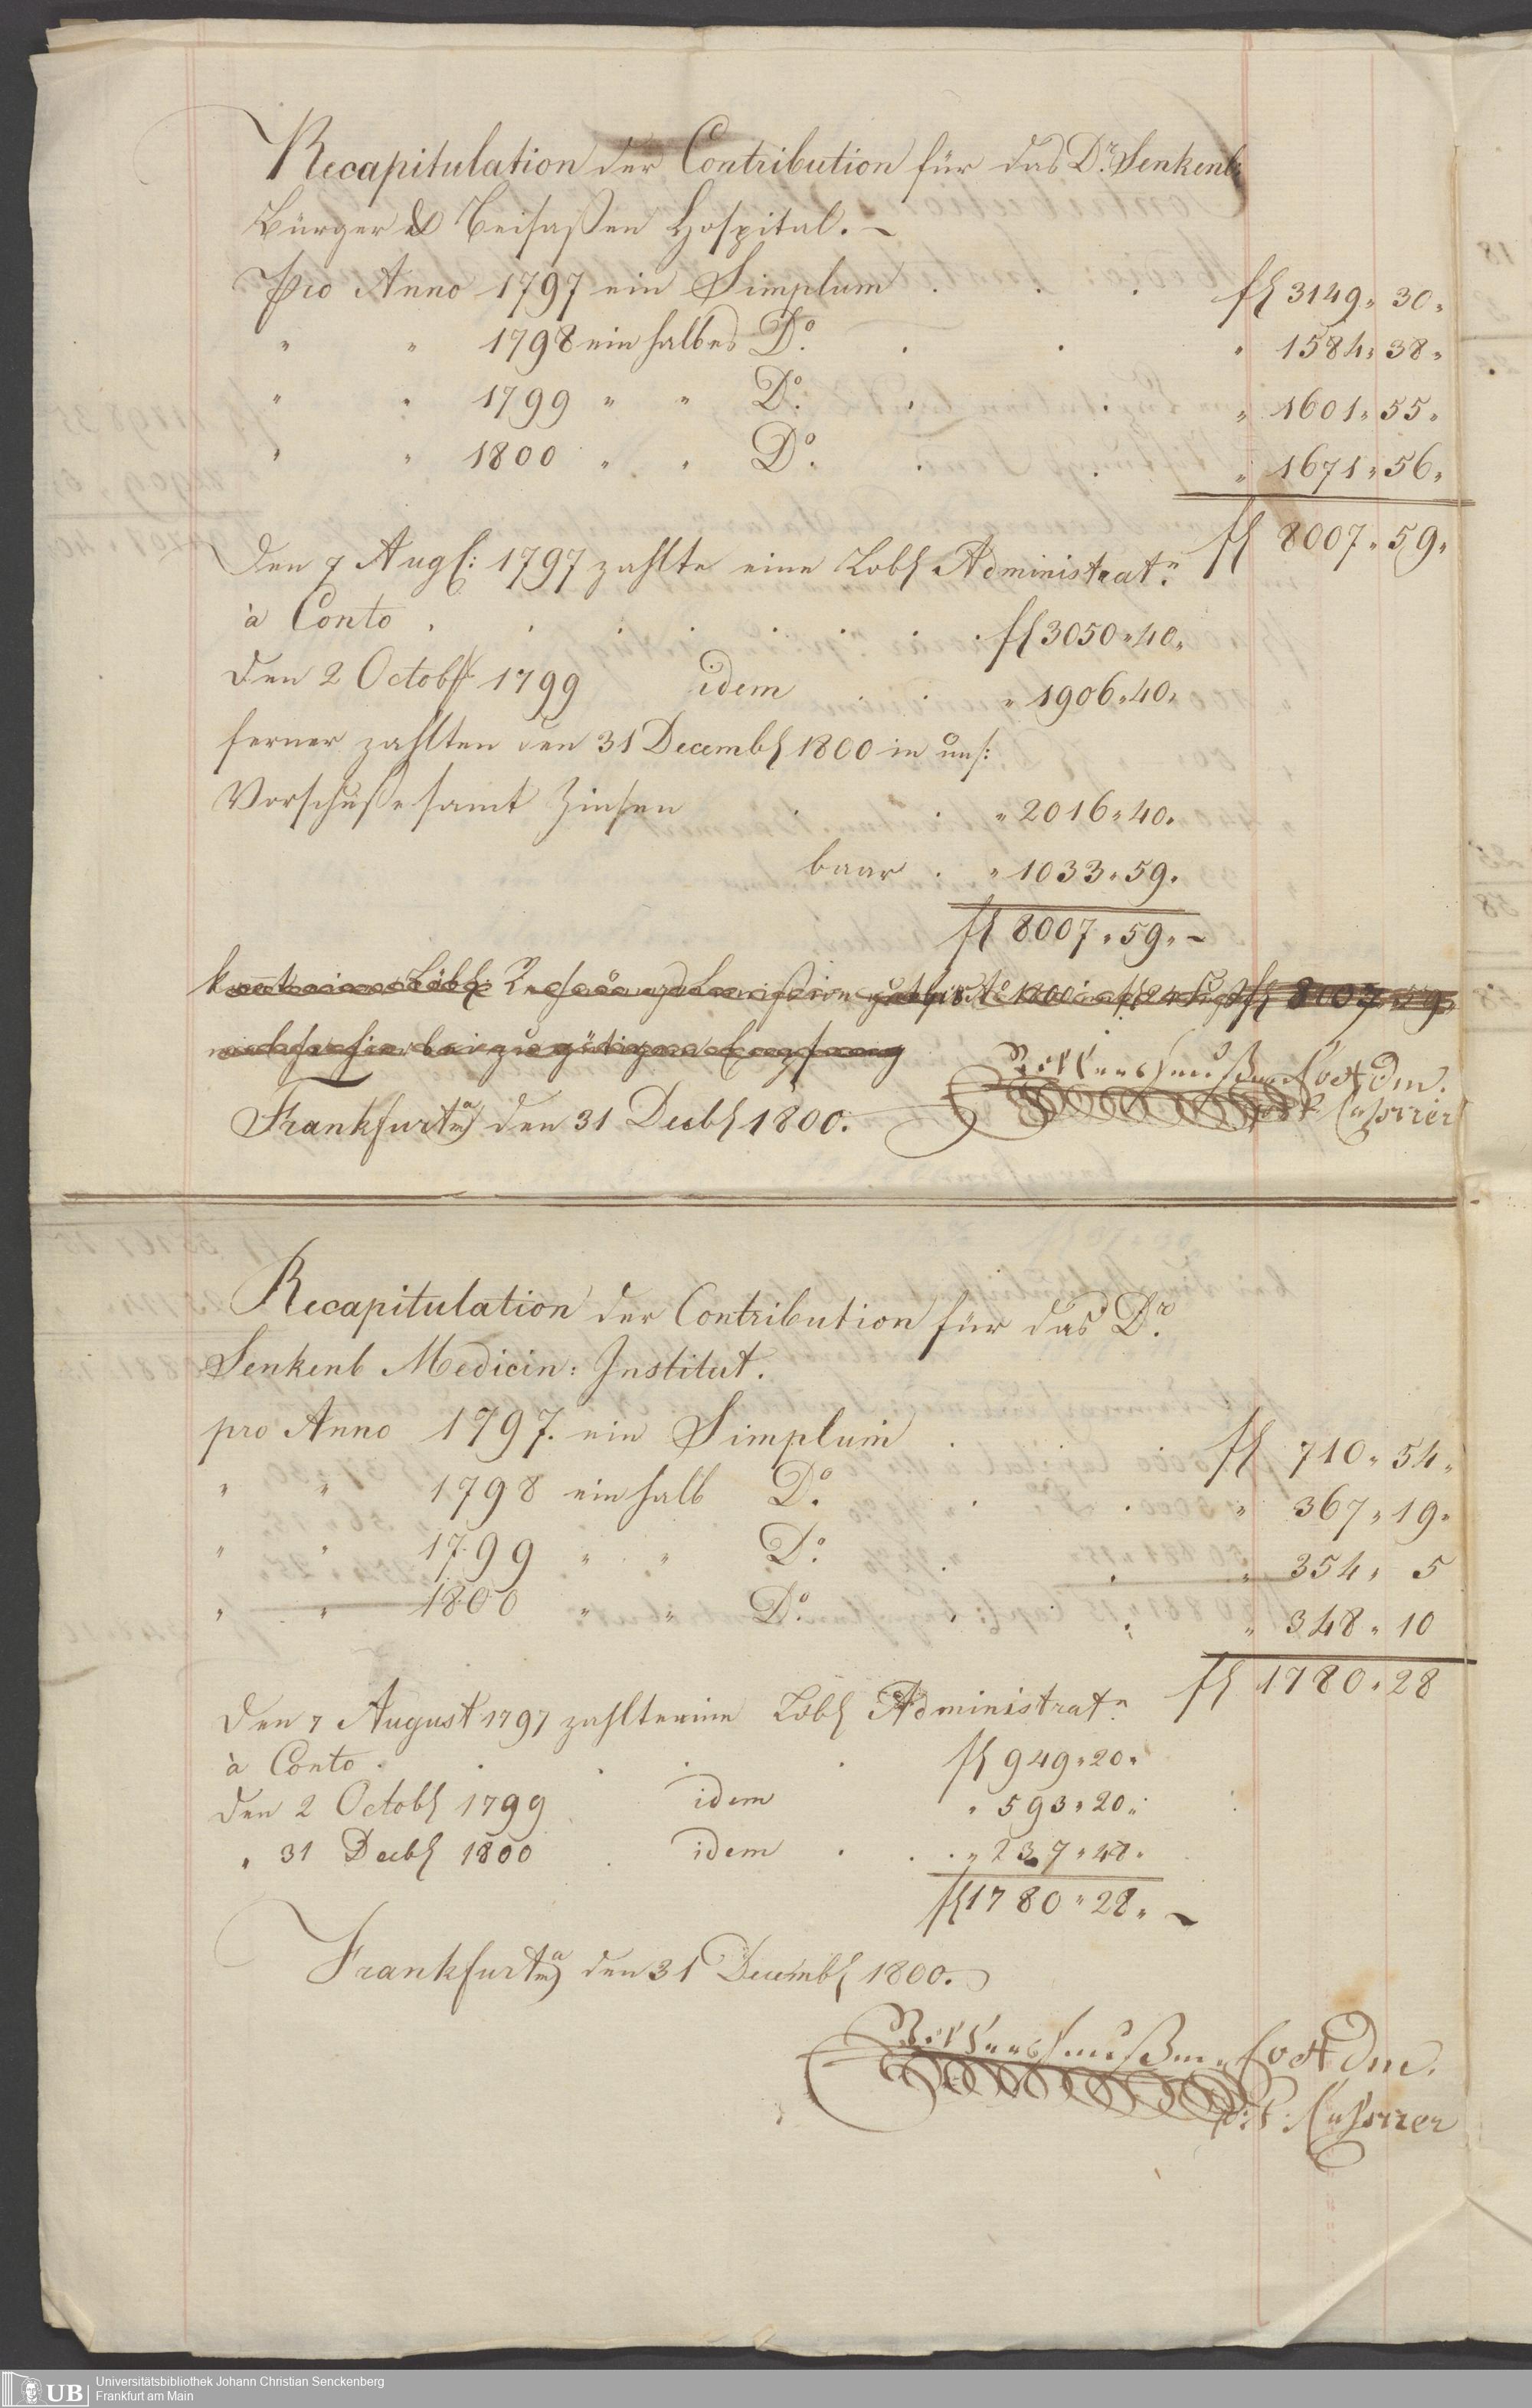 Recapitulation der Contribution für das Dr. Senkenb.
Bürger & Beisaßen Hospital. ~
Pro Anno 1797 ein Simplum . . . fl 3149 " 30 "
" " 1798 ein halbes Do. . . " 1584 " 38 "
" " 1799 " " Do. . . " 1601 " 55 "
" " 1800 " " Do. . . " 1671 " 56 "
fl 8007 " 59 "
Den 7 Augs: 1797 zahlte eine Löbl Administratn.
à Conto . . . . . . . . fl 3050 " 40 "
Den 2 Octobr 1799 idem . . " 1906 " 40 "
ferner zahlten den 31 Decembr 1800 in uns:
Vorschuße samt Zinsen . . " 2016 " 40 "
baar . " 1033 " 59 "
fl 8007 " 59 " ~
8007 " 59 "
Frankfurt a/m den 31 Decbr 1800.
Cassirer
Recapitulation der Contribution für das Dr.
Senkenb Medicin: Institut.
pro Anno 1797. ein Simplum . . . fl 710 " 54 "
" " 1798 ein halb Do. . . " 367 " 19 "
" " 1799 " " Do. . . " 354 " 5
" " 1800 " " Do. . . " 348 " 10
fl 1780 " 28
Den 7 August 1797 zahlte eine Löbl Administratn.
à Conto . . . . fl 949 " 20 "
Den 2 Octobr 1799 idem " 593 " 20 "
" 31 Decbr 1800 . idem . . . " 237 " 48 "
fl 1780 " 28 " ~
Frankfurt a/m den 31 Decembr 1800.
Cassirer
UB
Universitätsbibliothek Johann Christian Senckenberg
Frankfurt am Main